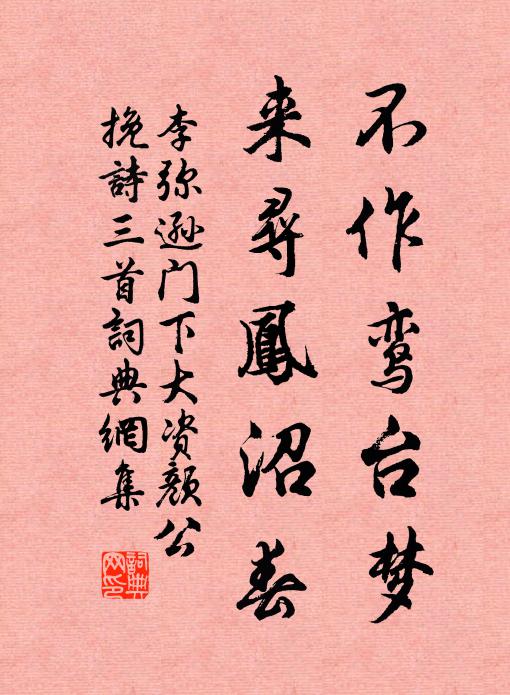 不作鸾台梦
来尋鳳沼春
李弥逊门下大资颜公
挽詩三首詞典網集
詞典
网印